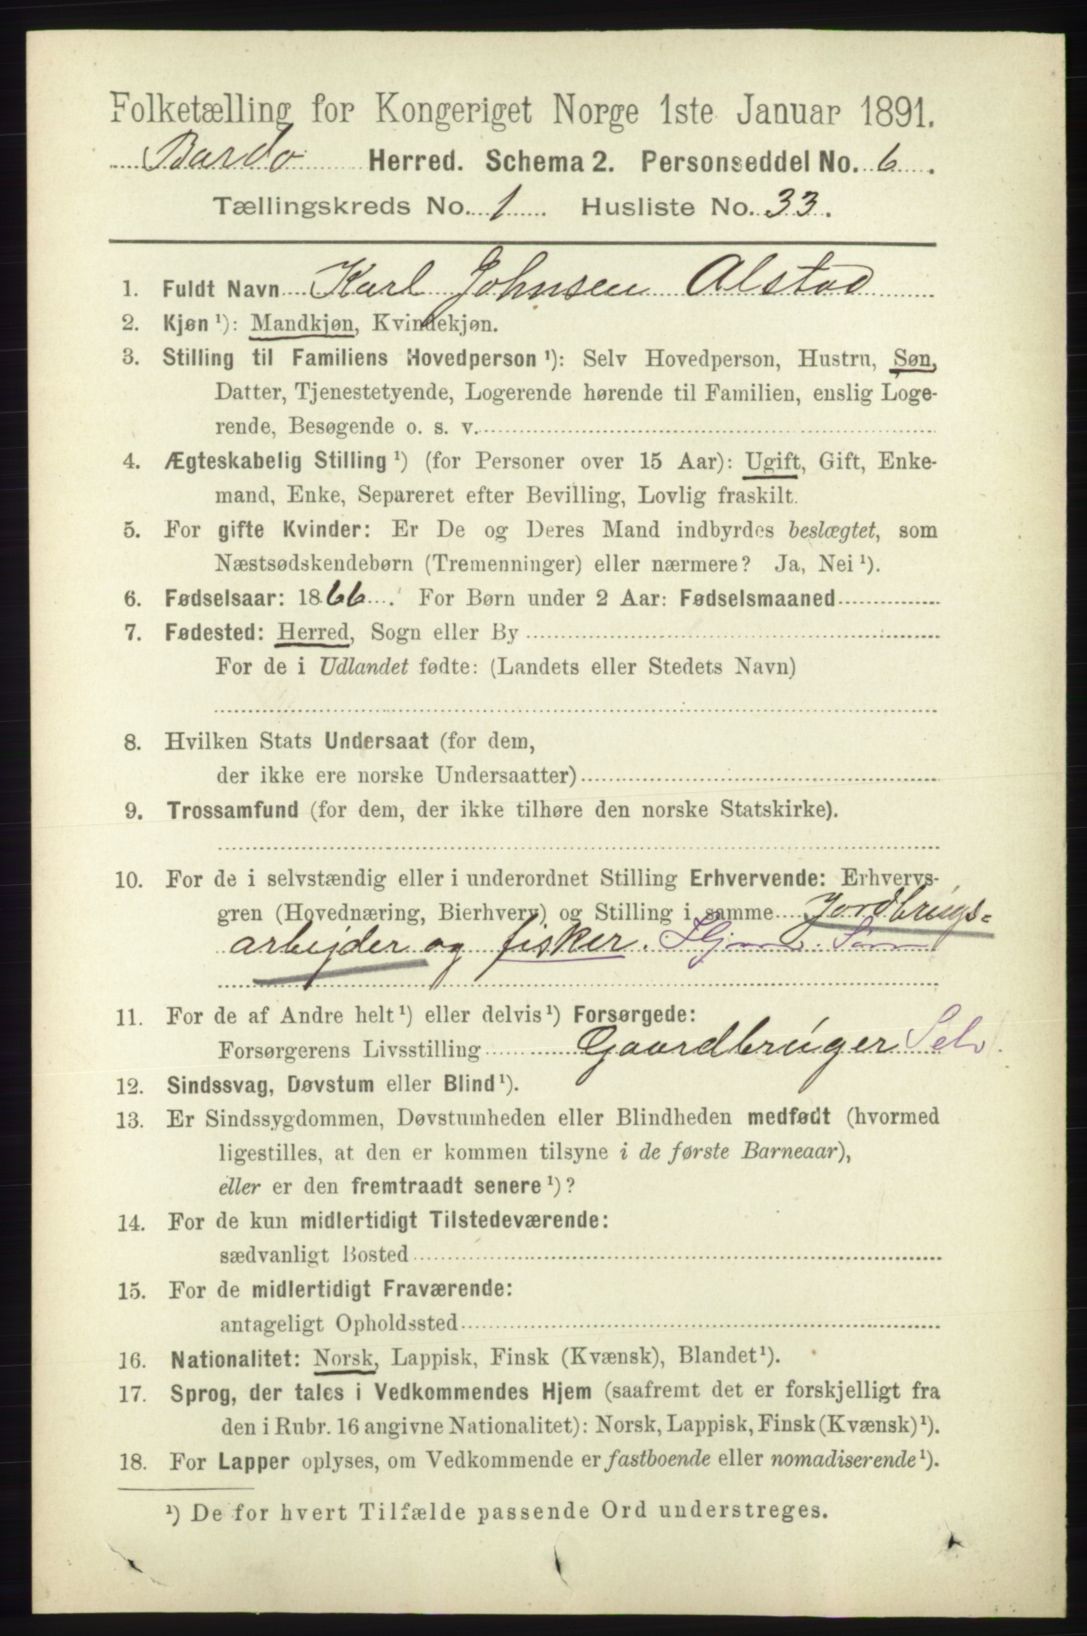 Folketælling for Kongeriget Norge 1ste Januar 1891.
Bardo Herred. Schema 2. Personseddel No. 6.
Tællingskreds No. 1 Husliste No. 33.
1. Fuldt Navn Karl Johnsen Alstad
2. Kjøn ¹): Mandkjøn, Kvindekjøn.
3. Stilling til Familiens Hovedperson ¹): Selv Hovedperson, Hustru, Søn,
Datter, Tjenestetyende, Logerende hørende til Familien, enslig Loge-
rende, Besøgende o. s. v.
4. Ægteskabelig Stilling ¹) (for Personer over 15 Aar): Ugift, Gift, Enke-
mand, Enke, Separeret efter Bevilling, Lovlig fraskilt.
5. For gifte Kvinder: Er De og Deres Mand indbyrdes beslægtet, som
Næstsødskendebørn (Tremenninger) eller nærmere? Ja, Nei ¹).
6. Fødselsaar: 1866. For Børn under 2 Aar: Fødselsmaaned
7. Fødested: Herred, Sogn eller By
For de i Udlandet fødte: (Landets eller Stedets Navn)
8. Hvilken Stats Undersaat (for dem,
der ikke ere norske Undersaatter)
9. Trossamfund (for dem, der ikke tilhøre den norske Statskirke).
10. For de i selvstændig eller i underordnet Stilling Erhvervende: Erhvervs-
gren (Hovednæring, Bierhverv) og Stilling i samme Jordbrugs=
arbejder og fisker. Hjem. Søn
11. For de af Andre helt ¹) eller delvis ¹) Forsørgede:
Forsørgerens Livsstilling Gaardbruger Selv
12. Sindssvag, Døvstum eller Blind ¹).
13. Er Sindssygdommen, Døvstumheden eller Blindheden medfødt (hvormed
ligestilles, at den er kommen tilsyne i de første Barneaar),
eller er den fremtraadt senere ¹)?
14. For de kun midlertidigt Tilstedeværende:
sædvanligt Bosted
15. For de midlertidigt Fraværende:
antageligt Opholdssted
16. Nationalitet: Norsk, Lappisk, Finsk (Kvænsk), Blandet ¹).
17. Sprog, der tales i Vedkommendes Hjem (saafremt det er forskjelligt fra
den i Rubr. 16 angivne Nationalitet): Norsk, Lappisk, Finsk (Kvænsk) ¹).
18. For Lapper oplyses, om Vedkommende er fastboende eller nomadiserende ¹).
¹) De for hvert Tilfælde passende Ord understreges.